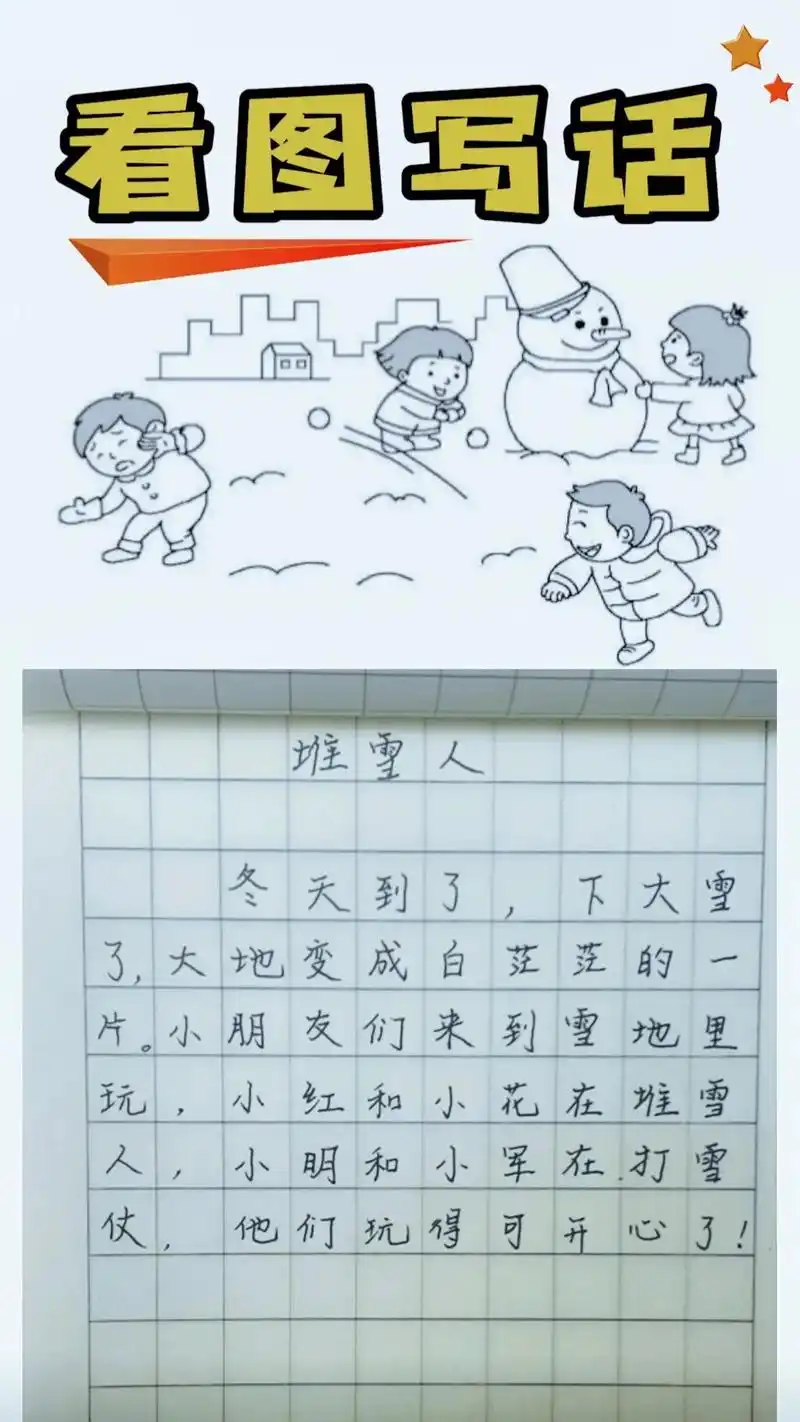 看图写话
堆雪人
冬天到了，下大雪
了，大地变成白茫茫的一
片。小朋友们来到雪地里
玩，小红和小花在堆雪
人，小明和小军在打雪
仗，他们玩得可开心了！